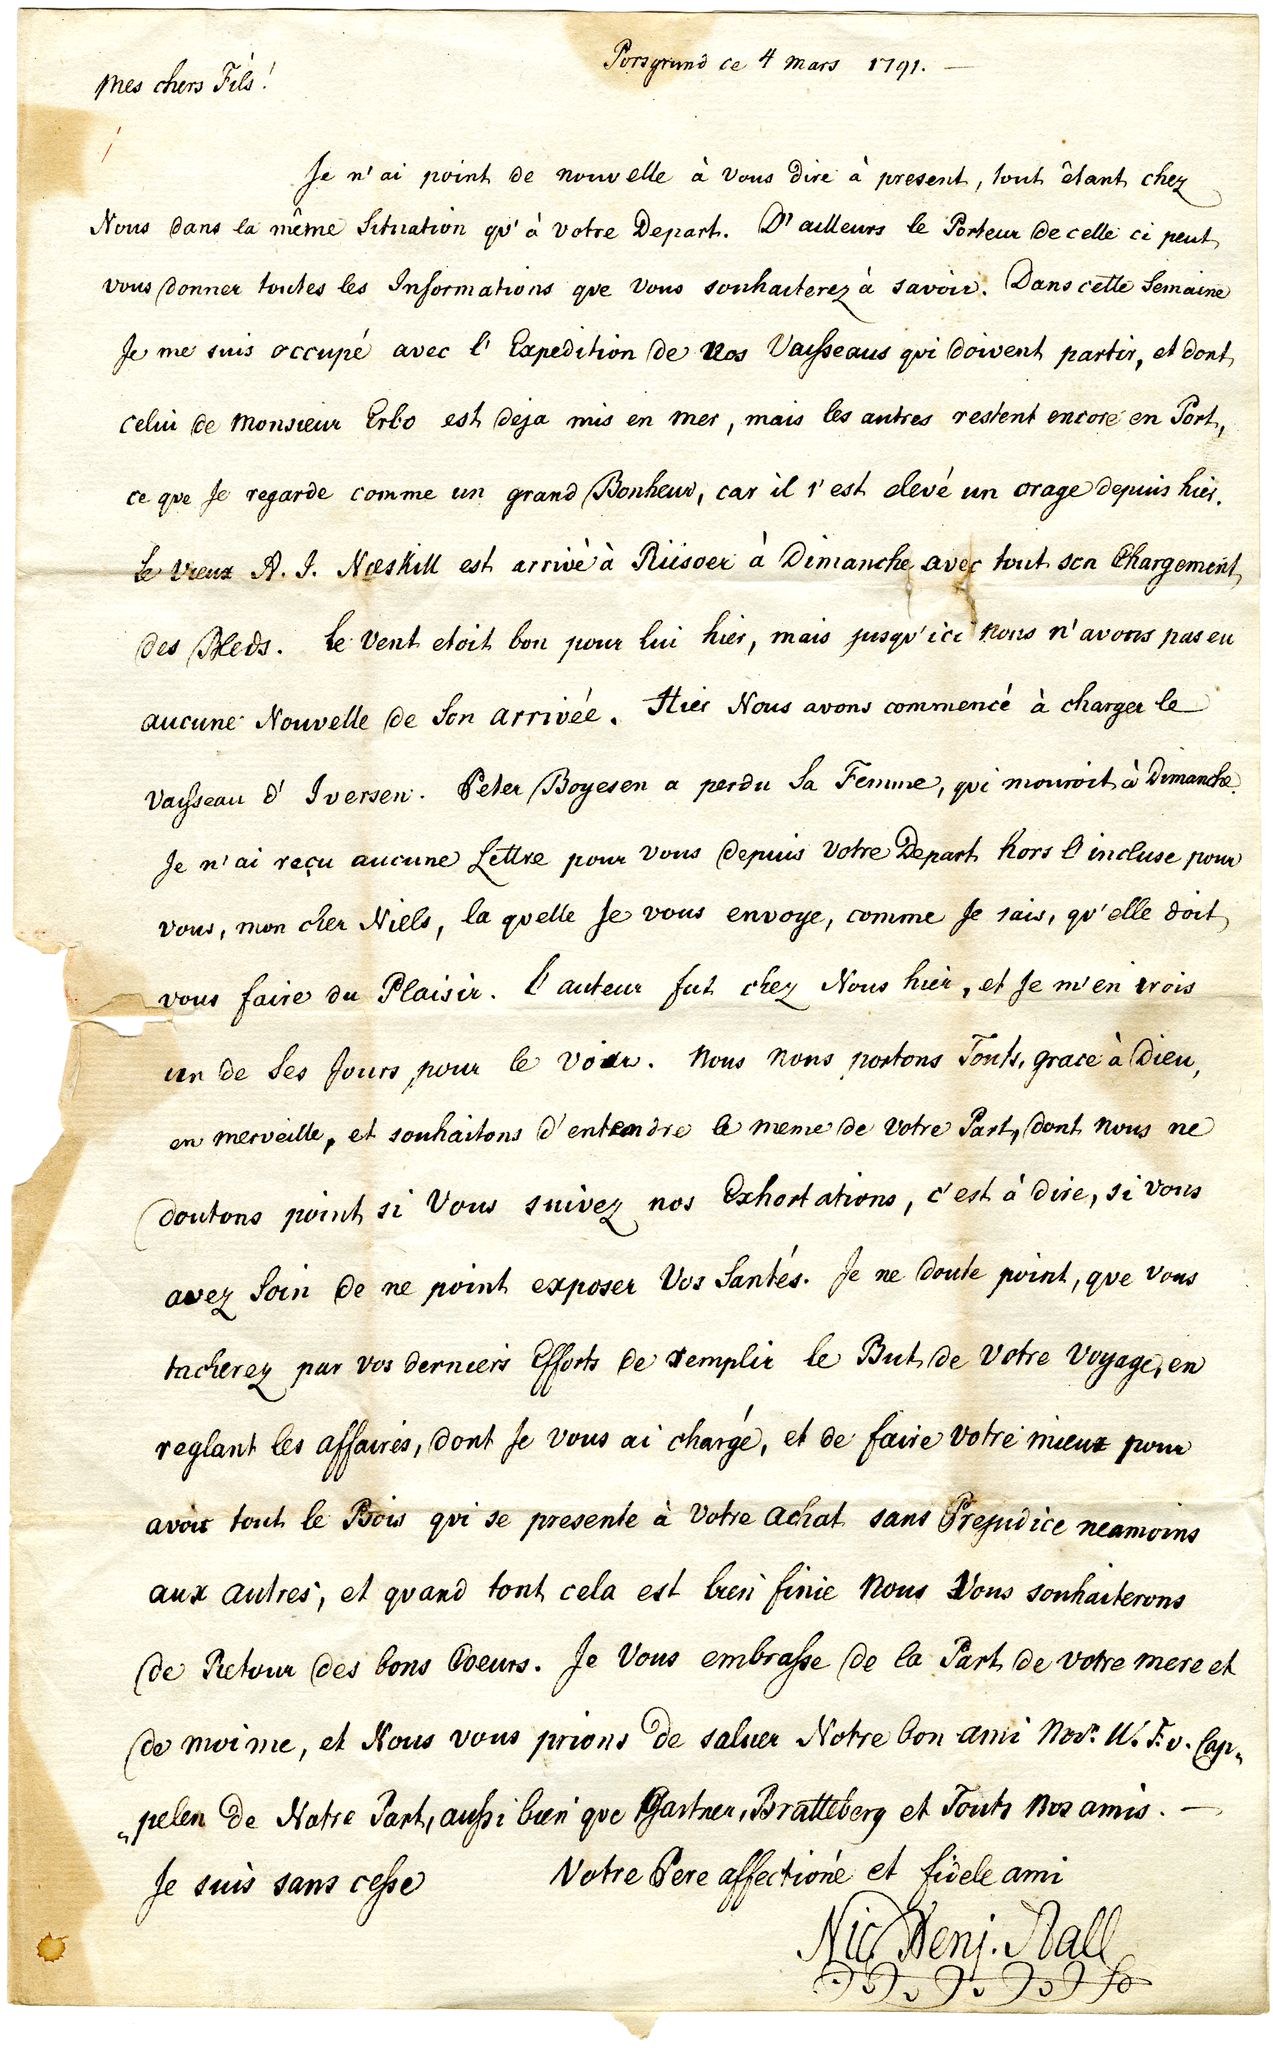 Porsgrund ce 4 Mars 1791. —
Mes chers Fils!
Je n'ai point de nouvelle à vous dire à present, tout êtant chez
Nous dans la même Situation qu'à votre Depart. D'ailleurs le Porteur de celle ci peut
vous donner toutes les Informations que vous souhaiterez à savoir. Dans cette Semaine
Je me suis occupé avec l'Expedition de Nos Vaisseaus qui doivent partir, et dont
celui de Monsieur Erbo est deja mis en mer, mais les autres restent encore en Port,
ce que Je regarde comme un grand Bonheur, car il s'est elevé un orage depuis hier.
Le vieux A. J. Næskill est arrivé à Riisoer à Dimanche avec tout son Chargement
des Bleds. Le Vent etoit bon pour lui hier, mais jusqu'ici nous n'avons pas eu
aucune Nouvelle de Son arrivée. Hier Nous avons commencé à charger le
Vaisseau d'Iversen. Peter Boyesen a perdu Sa Femme, qui mouroit à Dimanche.
Je n'ai reçu aucune Lettre pour vous depuis votre Depart hors l'incluse pour
vous, mon cher Niels, la quelle Je vous envoye, comme Je sais, qu'elle doit
vous faire du Plaisir. L'auteur fut chez Nous hier, et Je m'en irois
un de Ses Jours pour le voir. Nous nous portons Touts, grace à Dieu,
en merveille, et souhaitons d'entendre le meme de Votre Part, dont nous ne
doutons point si Vous suivez nos Exhortations, c'est à dire, si vous
avez Soin de ne point exposer Vos Santés. Je ne doute point, que vous
tacherez par vos derniers Efforts de remplir le But de Votre Voyage, en
reglant les affaires, dont Je vous ai chargé, et de faire Votre mieux pour
avoir tout le Bois qui se presente à Votre achat sans Prejudice neamoins
aux autres, et quand tout cela est bien finie Nous Vous souhaiterons
de Retour des bons Coeurs. Je Vous embrasse de la Part de votre mere et
de moi me, et Nous vous prions de saluer Notre bon ami W. F. v. Cap„
„pelen de Notre Part, aussi bien que Gartner, Bratteberg et Touts Nos amis. —
Je suis sans cesse Votre Pere affectioné et fidele ami
Nic Benj. Aall